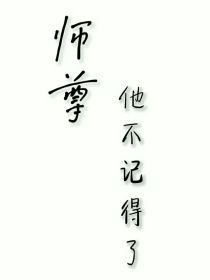 师尊
他不记得了